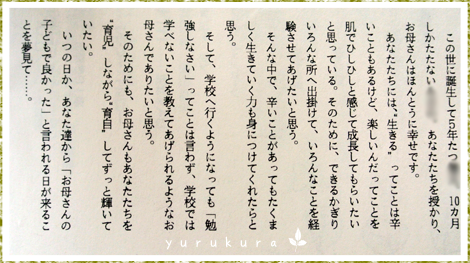 この世に誕生して5年たつ
10カ月
しかたたない
あなたたちを授かり、
お母さんはほんとうに幸せです。
あなたたちには、"生きる"ってことは辛
いこともあるけど、楽しいんだってことを
肌でひしひしと感じて成長してもらいたい
と思っている。そのために、できるかぎり
いろんな所へ出掛けて、いろんなことを経
験させてあげたいと思う。
そんな中で、辛いことがあってもたくま
しく生きていく力も身につけてくれたらと
思う。
そして、学校へ行くようになっても「勉
強しなさい」ってことは言わず、学校では
学べないことを教えてあげられるようなお
母さんでありたいと思う。
そのためにも、お母さんもあなたたちを
"育児"しながら"育自"してずっと輝いて
いたい。
いつの日か、あなた達から「お母さんの
子どもで良かった」と言われる日が来るこ
とを夢見て……。
yurukura